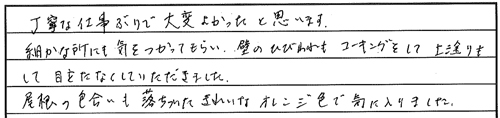 丁寧な仕事ぶりで大変よかったと思います。
細かな所にも気をつかってもらい、壁のひびわれもコーキングをして上塗りも
して目をたなくしていただきました。
屋根の色合いも落ちついたきれいなオレンジ色で気に入りました。